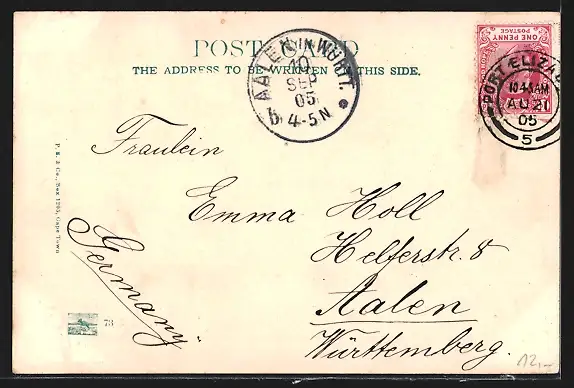 POST CARD
THE ADDRESS TO BE WRITTEN ON THIS SIDE.
AALEN IN WÜRTT.
10
SEP
05
4-5 N
ONE PENNY
POSTAGE
PORT ELIZA
10.45 AM
AU 21
05
5
Fraulein
Emma Holl
Helferstr. 8
Aalen
Württemberg.
Germany
P. R. & Co., Box 1295, Cape Town
73
12,-